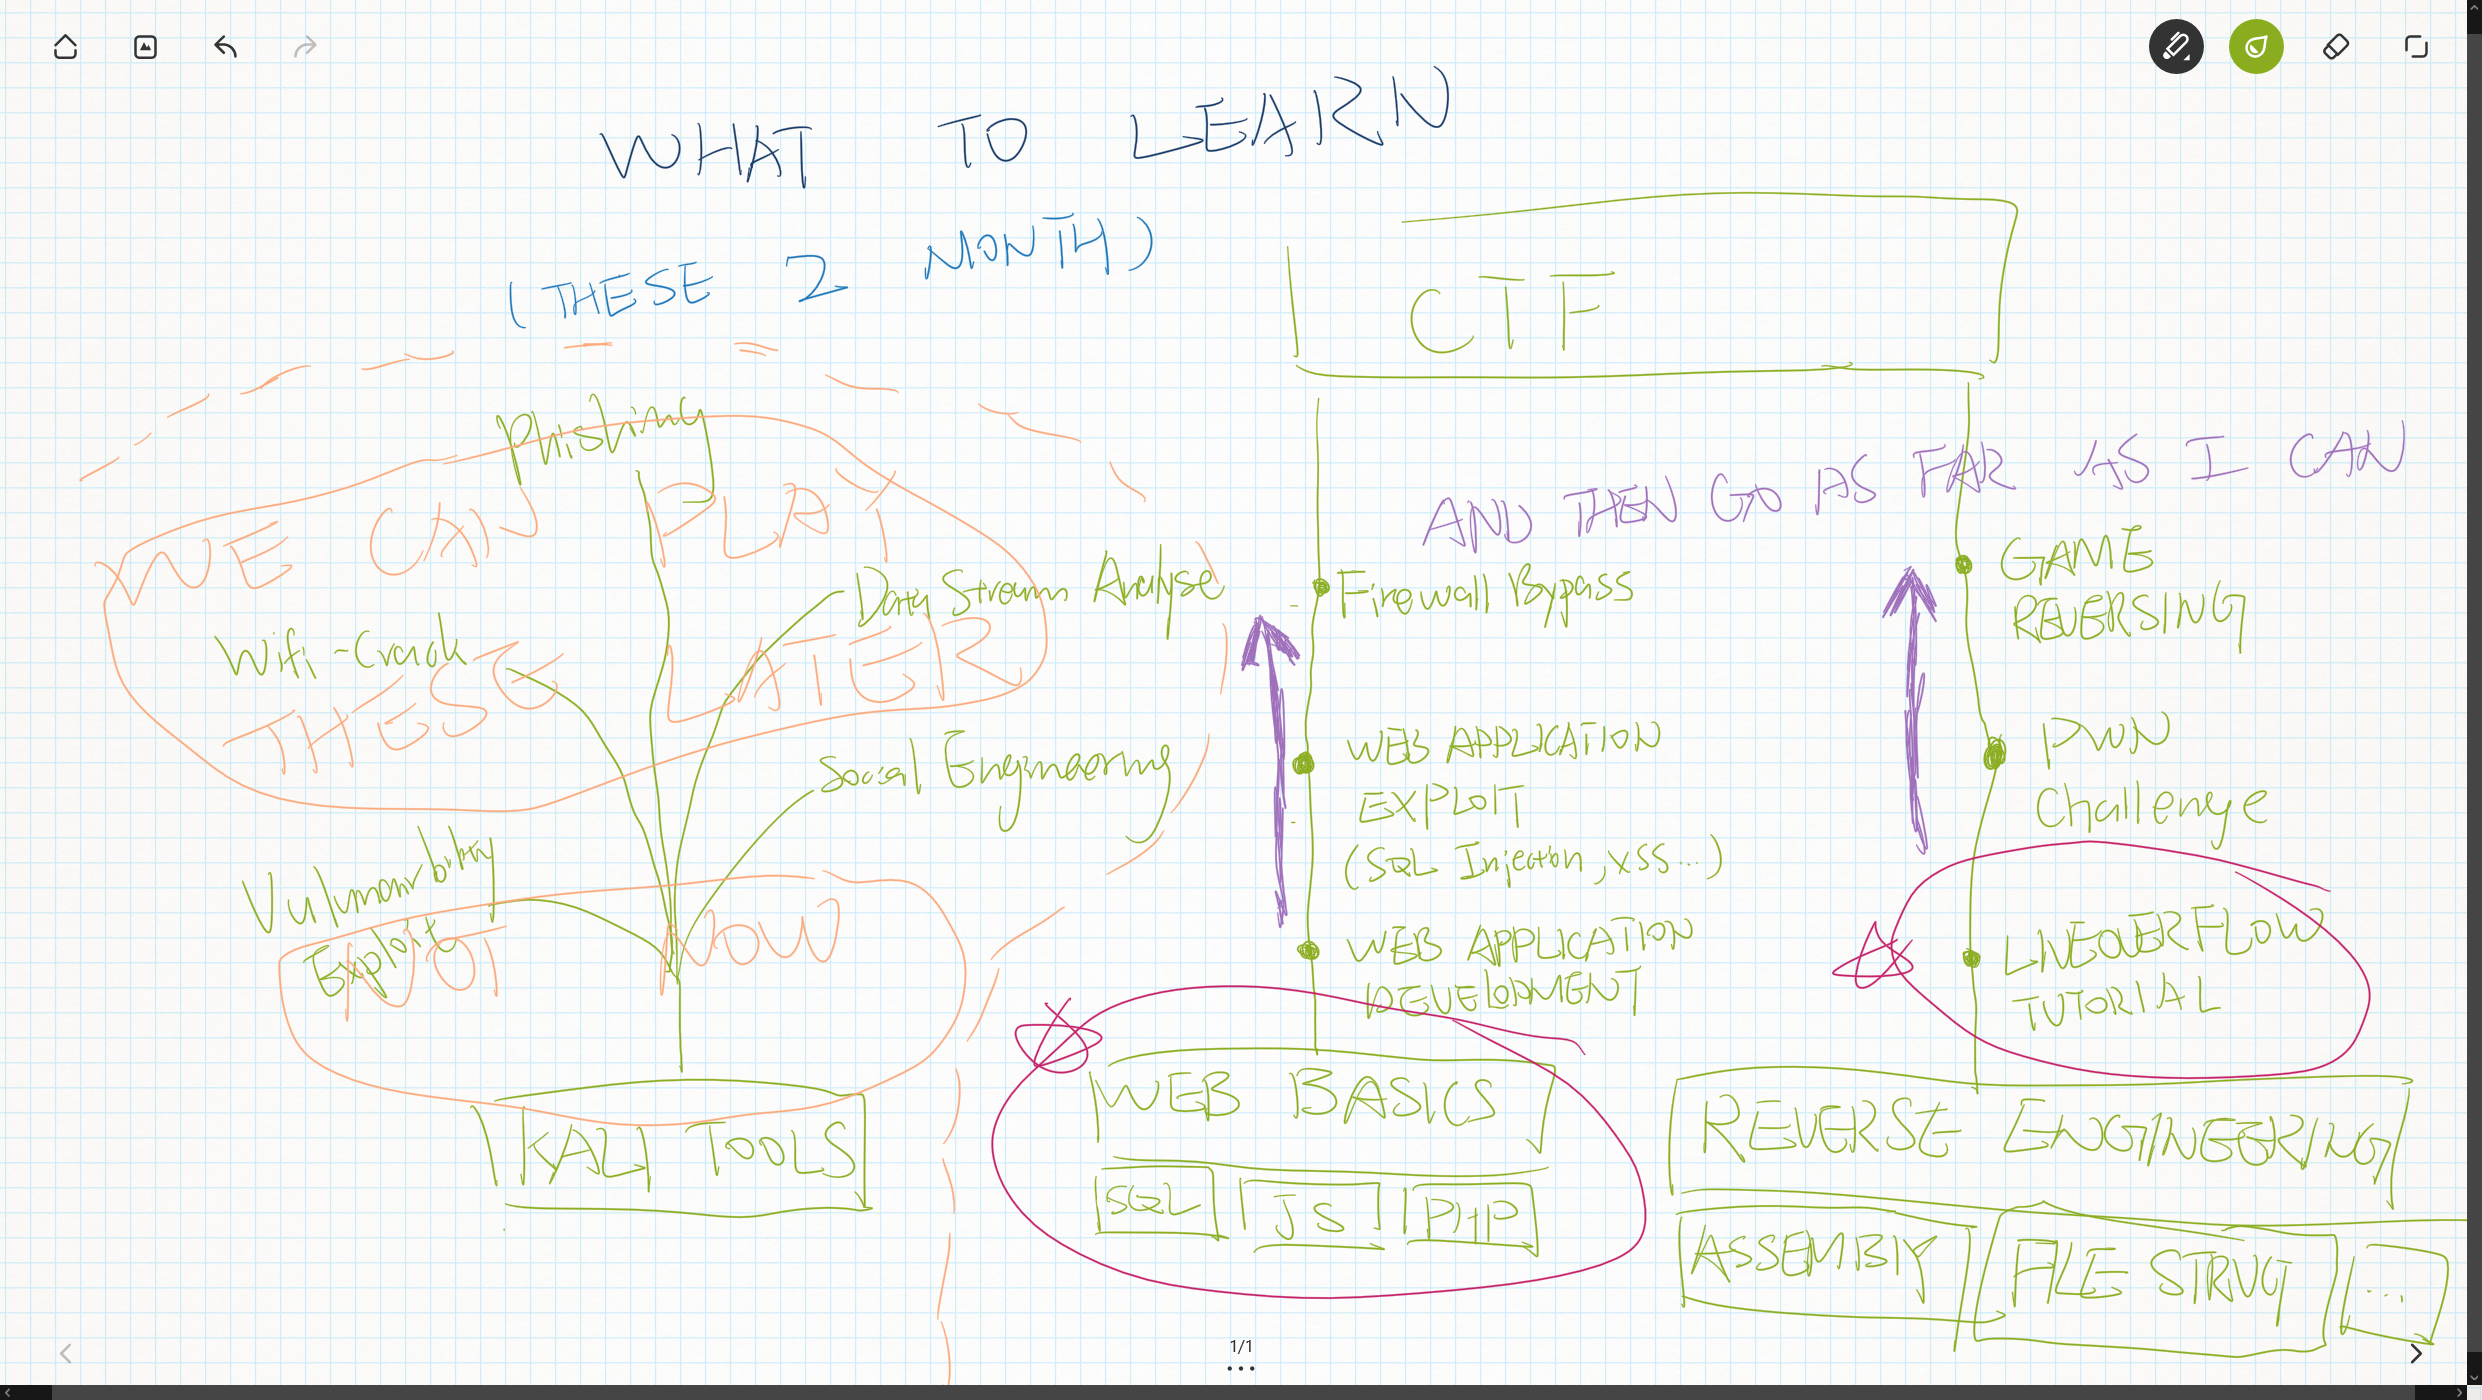 WHAT TO LEARN
(THESE 2 MONTH)
CTF
Phishing
WE CAN PLAY
THESE LATER
Wifi-Crack
Data Stream Analyse
Social Engineering
Vulnmanribility
Exploit
NOT NOW
KALI TOOLS
AND THEN GO AS FAR AS I CAN
Firewall Bypass
WEB APPLICATION
EXPLOIT
(SQL Injection, XSS...)
WEB APPLICATION
DEVELOPMENT
WEB BASICS
SQL JS PHP
GAME
REVERSING
PWN
Challenge
LIVEOVERFLOW
TUTORIAL
REVERSE ENGINEERING
ASSEMBLY FILE STRUCT ...
1/1